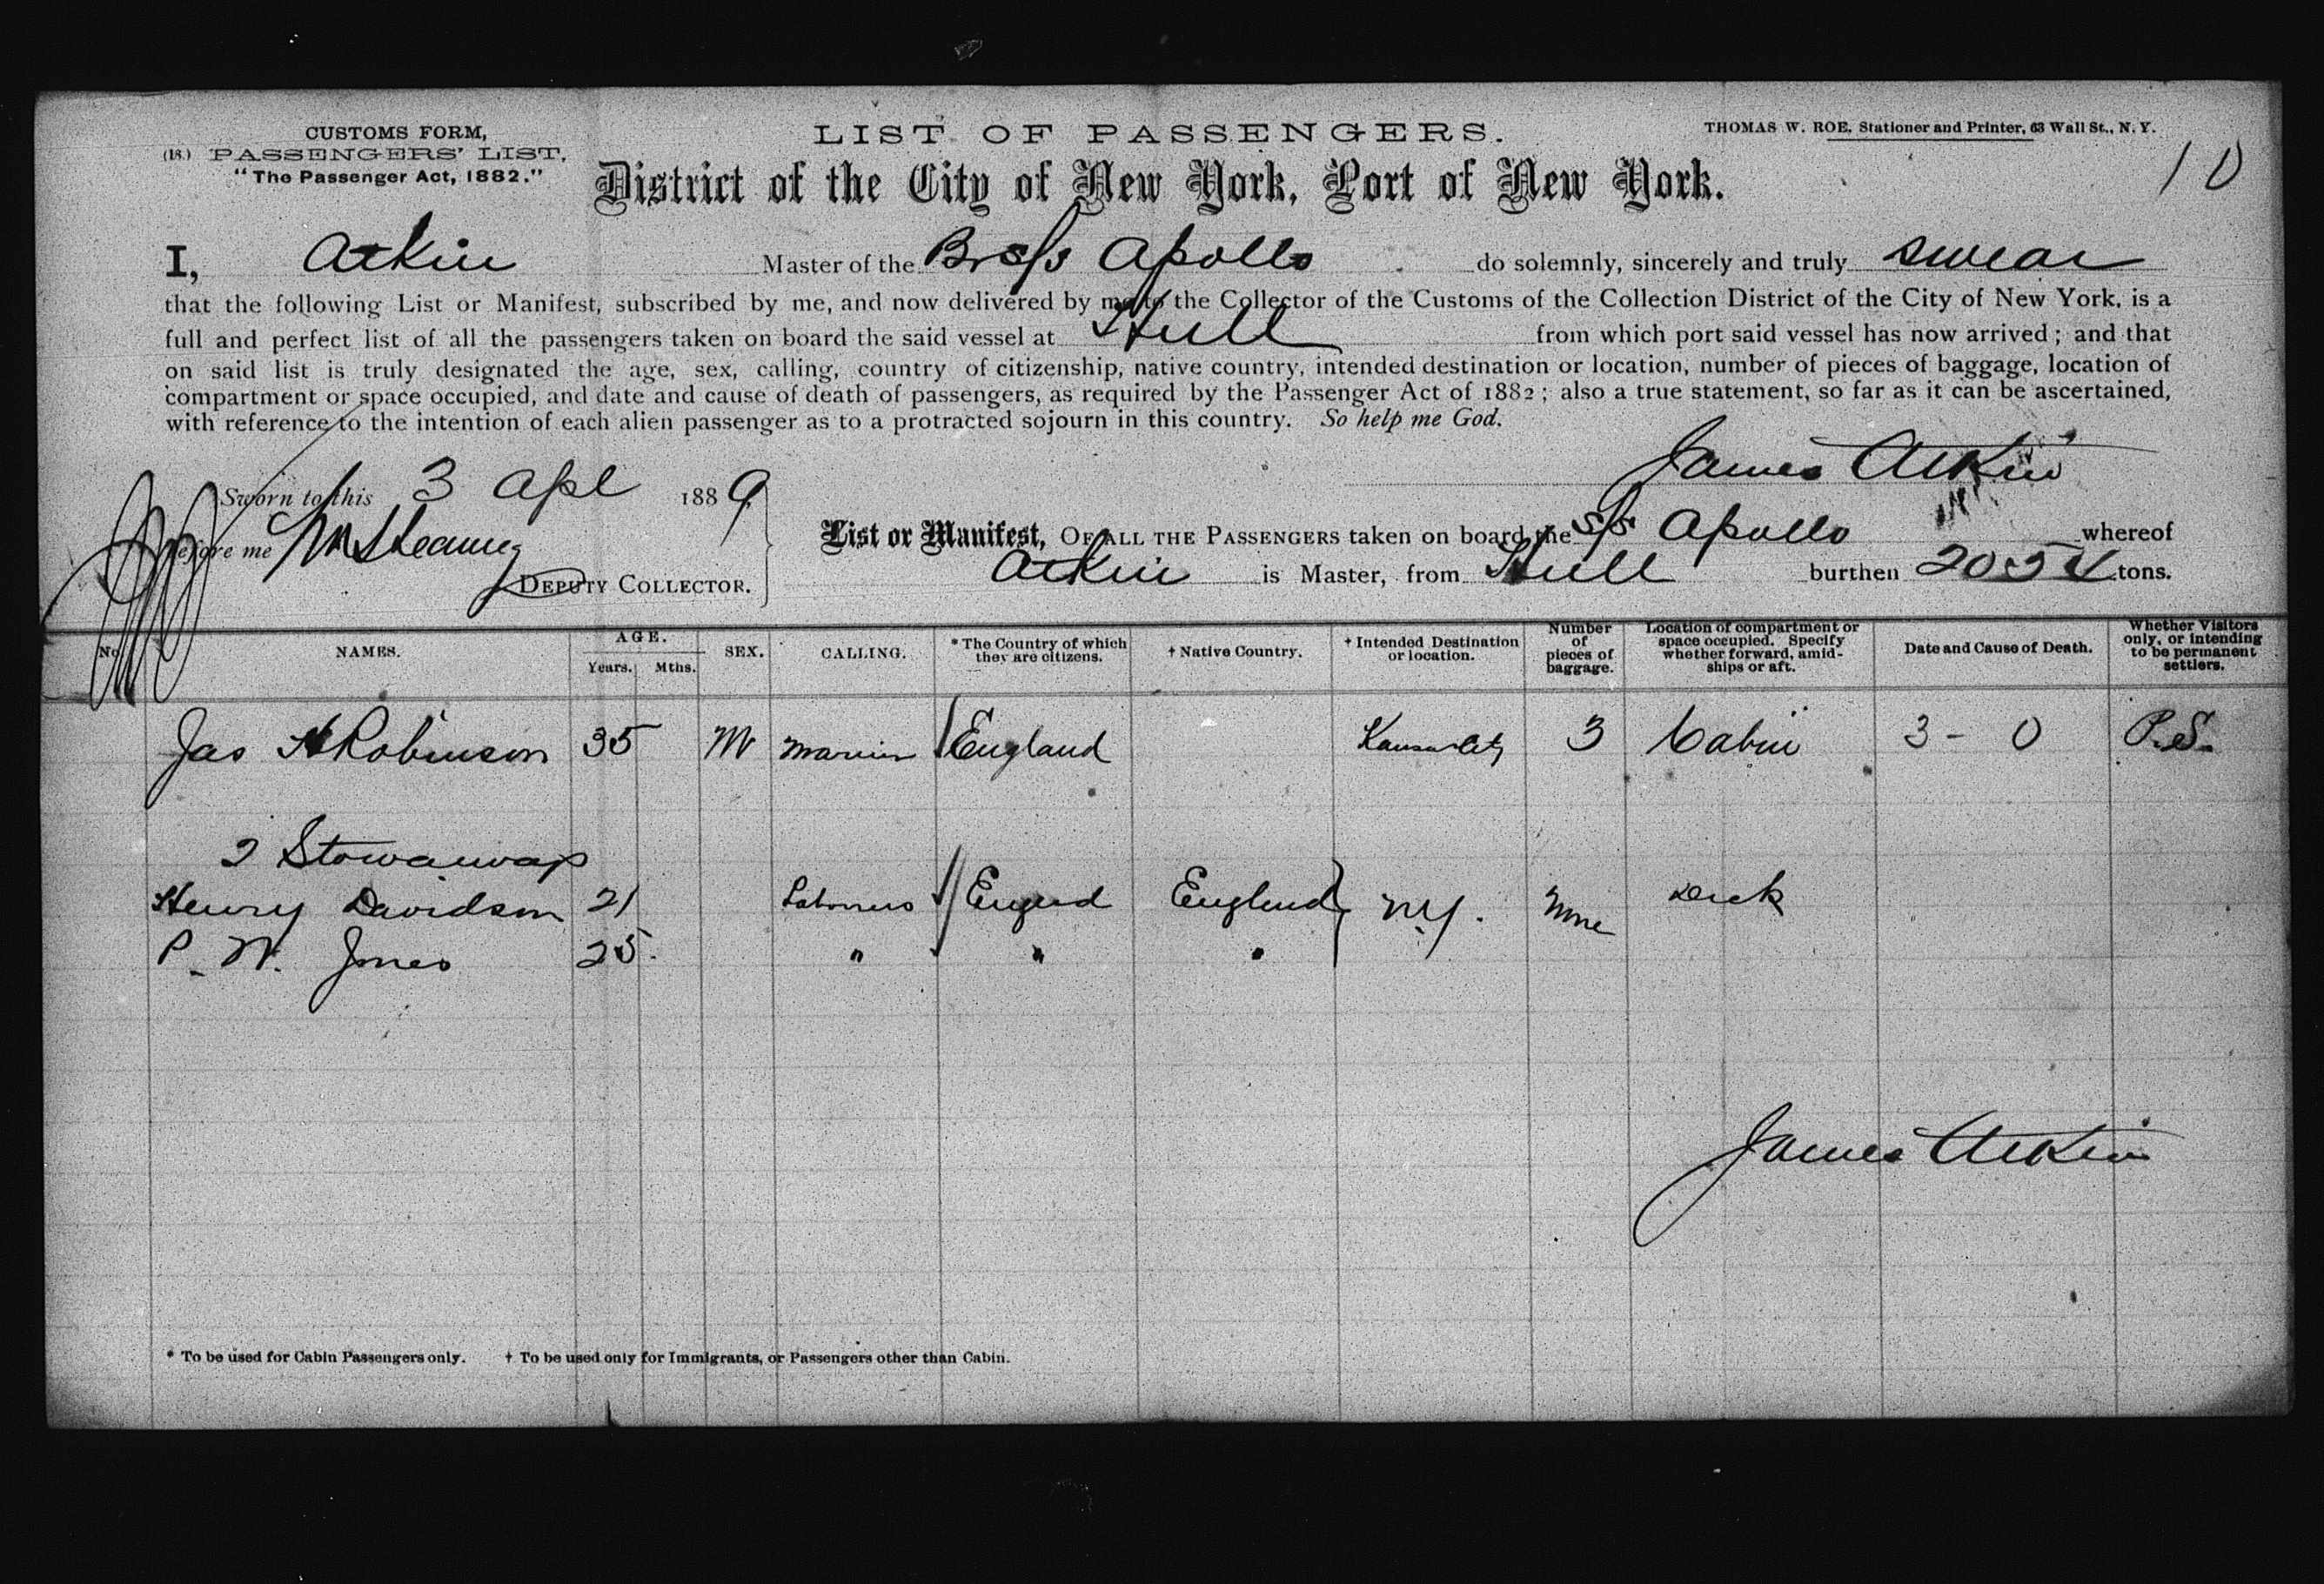 CUSTOMS FORM,
(18.) PASSENGERS' LIST,
"The Passenger Act, 1882."
LIST OF PASSENGERS.
THOMAS W. ROE, Stationer and Printer, 63 Wall St., N. Y.
District of the City of New York, Port of New York.
10
I, Atkin Master of the Br S/S Apollo do solemnly, sincerely and truly swear
that the following List or Manifest, subscribed by me, and now delivered by me to the Collector of the Customs of the Collection District of the City of New York, is a
full and perfect list of all the passengers taken on board the said vessel at Hull from which port said vessel has now arrived; and that
on said list is truly designated the age, sex, calling, country of citizenship, native country, intended destination or location, number of pieces of baggage, location of
compartment or space occupied, and date and cause of death of passengers, as required by the Passenger Act of 1882; also a true statement, so far as it can be ascertained,
with reference to the intention of each alien passenger as to a protracted sojourn in this country. So help me God.
James Atkin
Sworn to this 3 Apl 1889
before me
DEPUTY COLLECTOR.
List or Manifest, OF ALL THE PASSENGERS taken on board the S/S Apollo whereof
Atkin is Master, from Hull burthen 2054 tons.
No. NAMES. AGE. Years. Mths. SEX. CALLING. * The Country of which they are citizens. † Native Country. † Intended Destination or location. Number of pieces of baggage. Location of compartment or space occupied. Specify whether forward, amid-ships or aft. Date and Cause of Death. Whether Visitors only, or intending to be permanent settlers.
Jas H Robinson 35 M England Kansas City 3 Cabin 3 - 0 P.S.
2 Stowaways
Henry Davidson 21 Labourers England England N.Y. None Deck
P. W. Jones 25. " " "
James Atkin
* To be used for Cabin Passengers only. † To be used only for Immigrants, or Passengers other than Cabin.